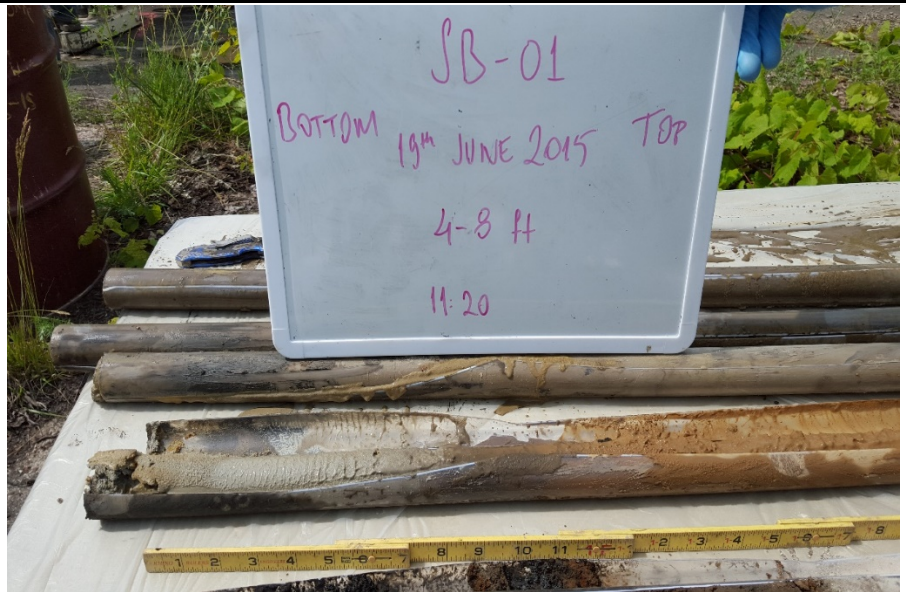 SB-01
BOTTOM 19th JUNE 2015 TOP
4-8 ft
11:20
1 2 3 4 5 6 8 9 10 11 2 3 4 5 6 7 8